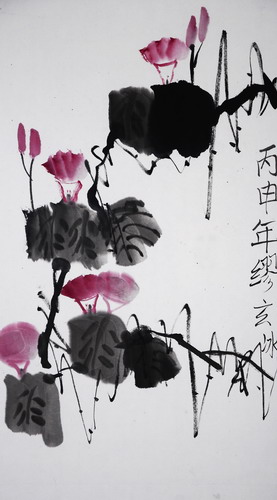 丙申年缪玄咏